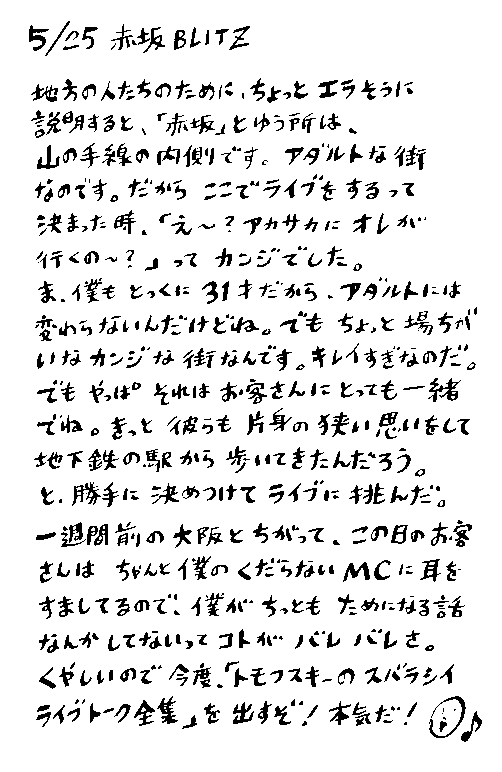 5/25 赤坂 BLITZ
地方の人たちのために、ちょっと エラそうに
説明すると、「赤坂」とゆう所は、
山の手線の内側です。アダルトな街
なのです。だから ここでライブをするって
決まった時、「え〜?アカサカに オレが
行くの〜?」って カンジでした。
ま、僕も とっくに 31才だから、アダルトには
変わらないんだけどね。でも ちょっと 場ちが
いな カンジな 街なんです。キレイすぎなのだ。
でも やっぱ それは お客さんに とっても 一緒
でね。きっと 彼らも 片身の 狭い 思いをして
地下鉄の駅から 歩いてきたんだろう。
と、勝手に 決めつけて ライブに 挑んだ。
一週間前の 大阪と ちがって、この日の お客
さんは ちゃんと 僕の くだらない MCに 耳を
すましてるので、僕が ちっとも ためになる話
なんか してないって コトが バレ バレさ。
くやしいので 今度、「トモフスキーの スバラシイ
ライブトーク全集」を 出すぞ! 本気だ!